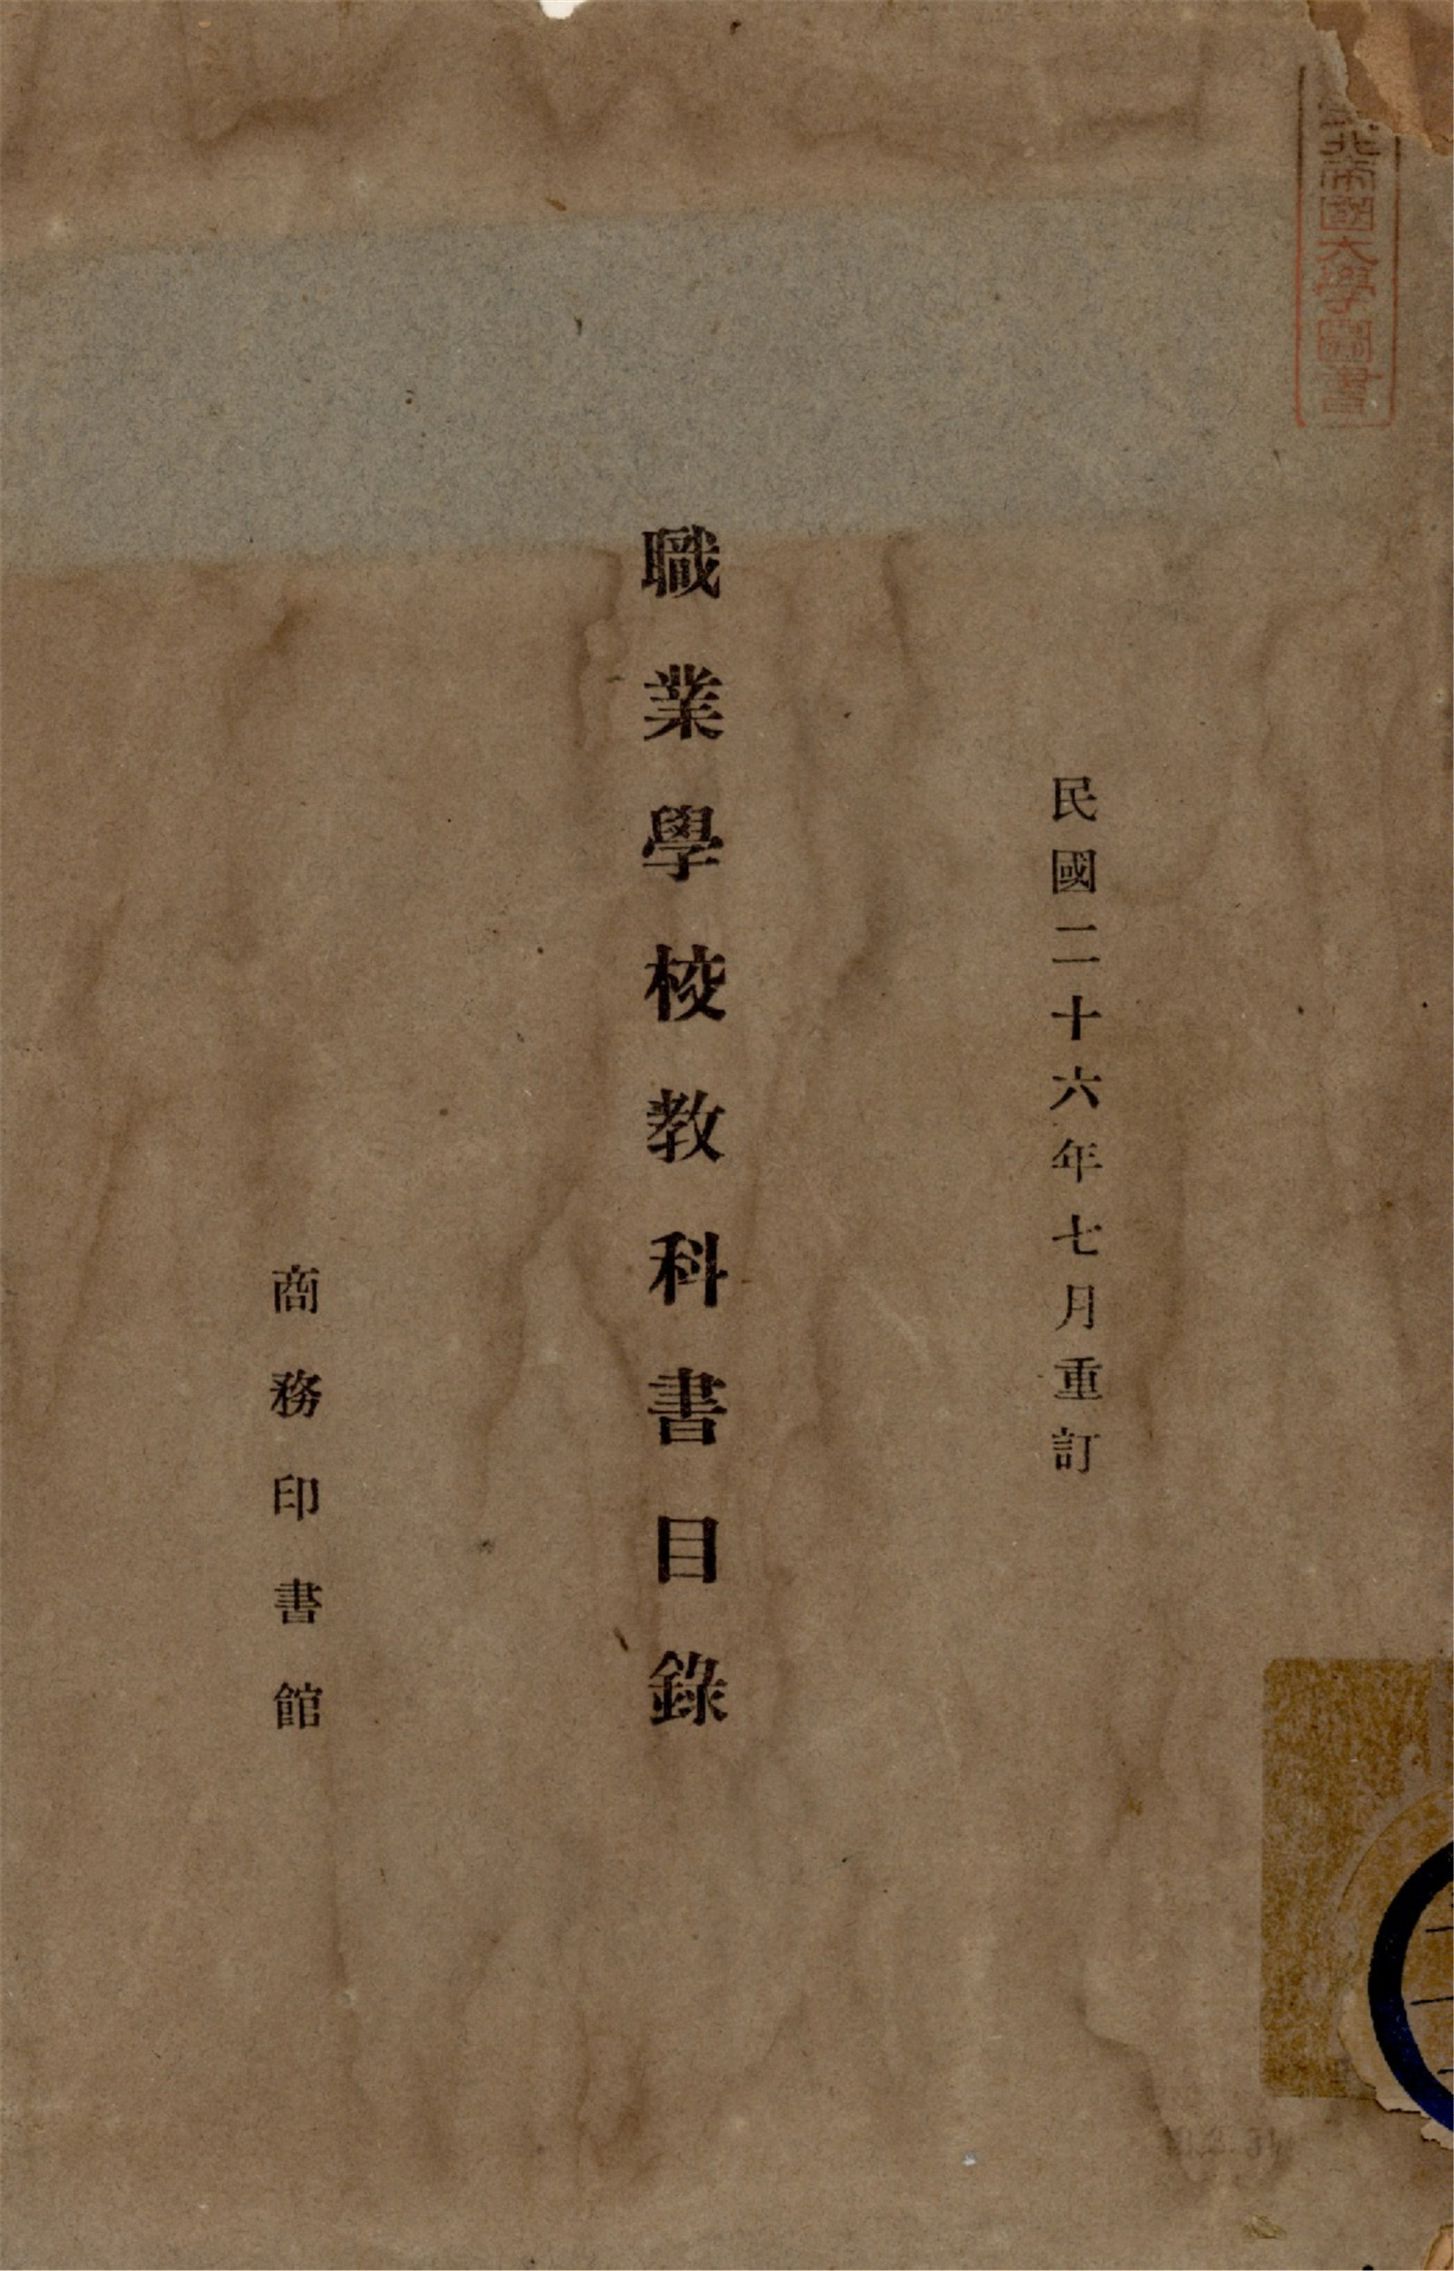 臺北帝國大學圖書
民國二十六年七月重訂
職業學校教科書目錄
商務印書館